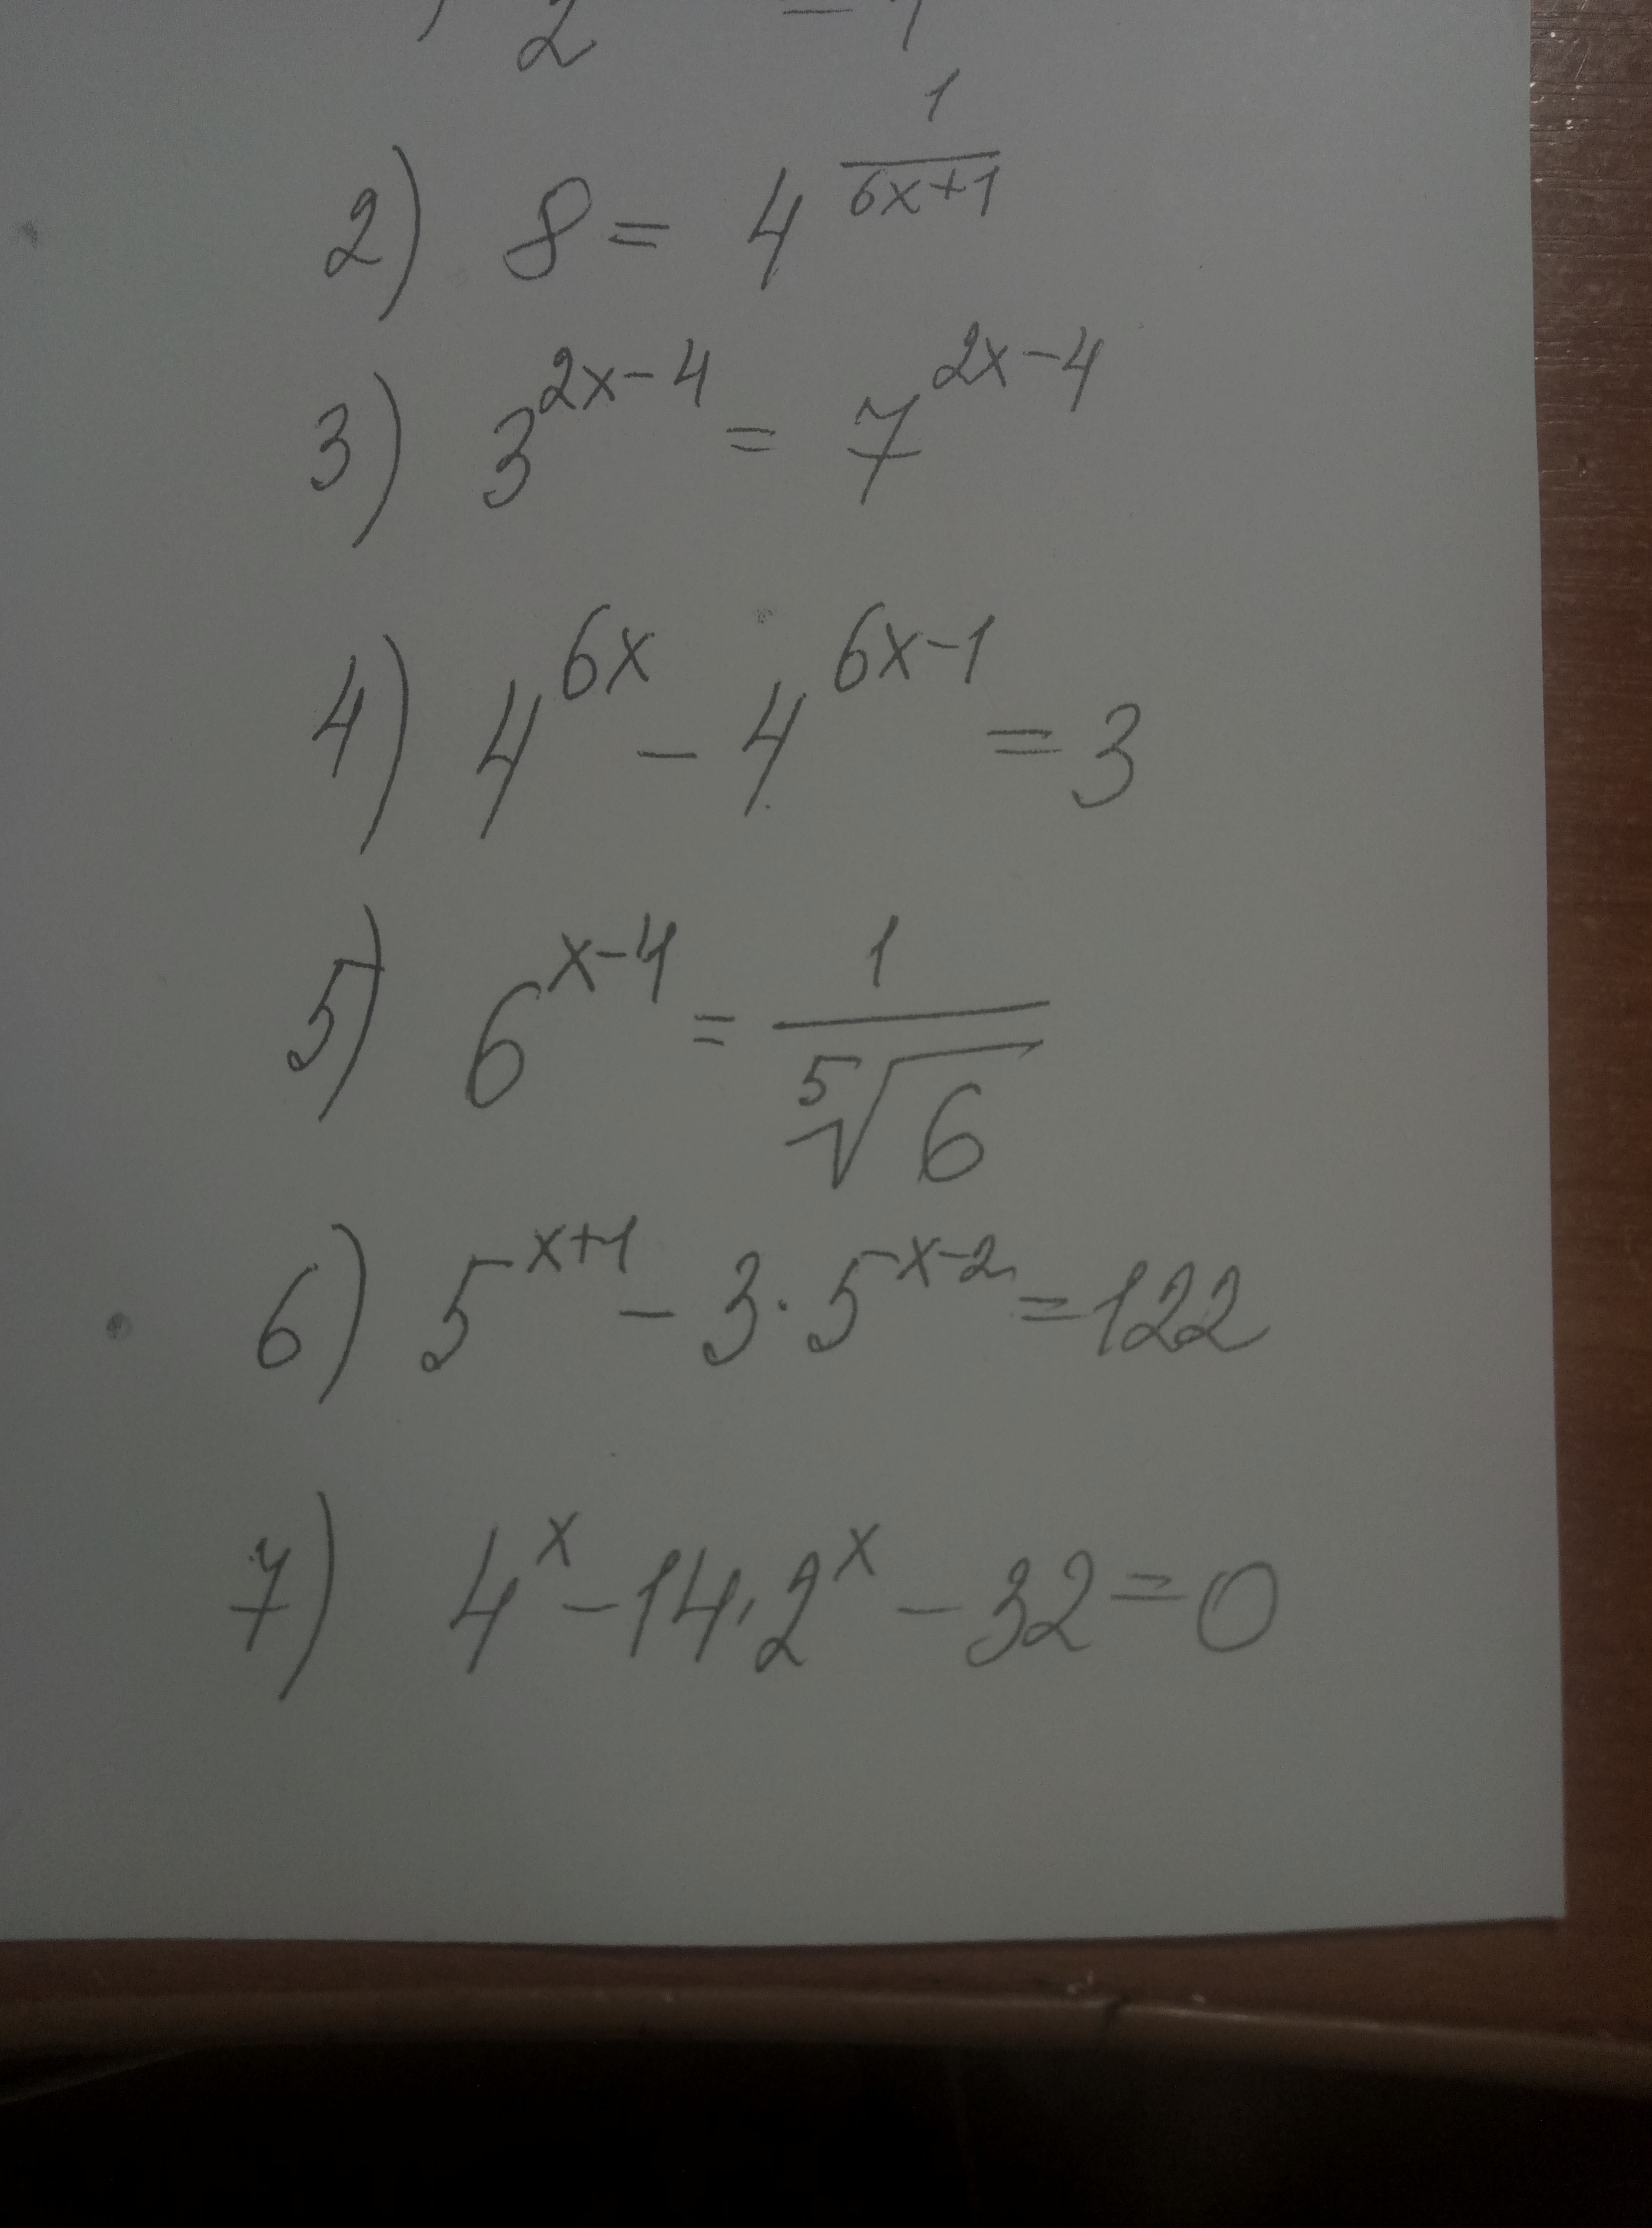 2
2) 8 = 4^(1/(6x+1))
3) 3^(2x-4) = 7^(2x-4)
4) 4^(6x) - 4^(6x-1) = 3
5) 6^(x-4) = 1/⁵√6
6) 5^(x+1) - 3·5^(x-2) = 122
7) 4^x - 14·2^x - 32 = 0